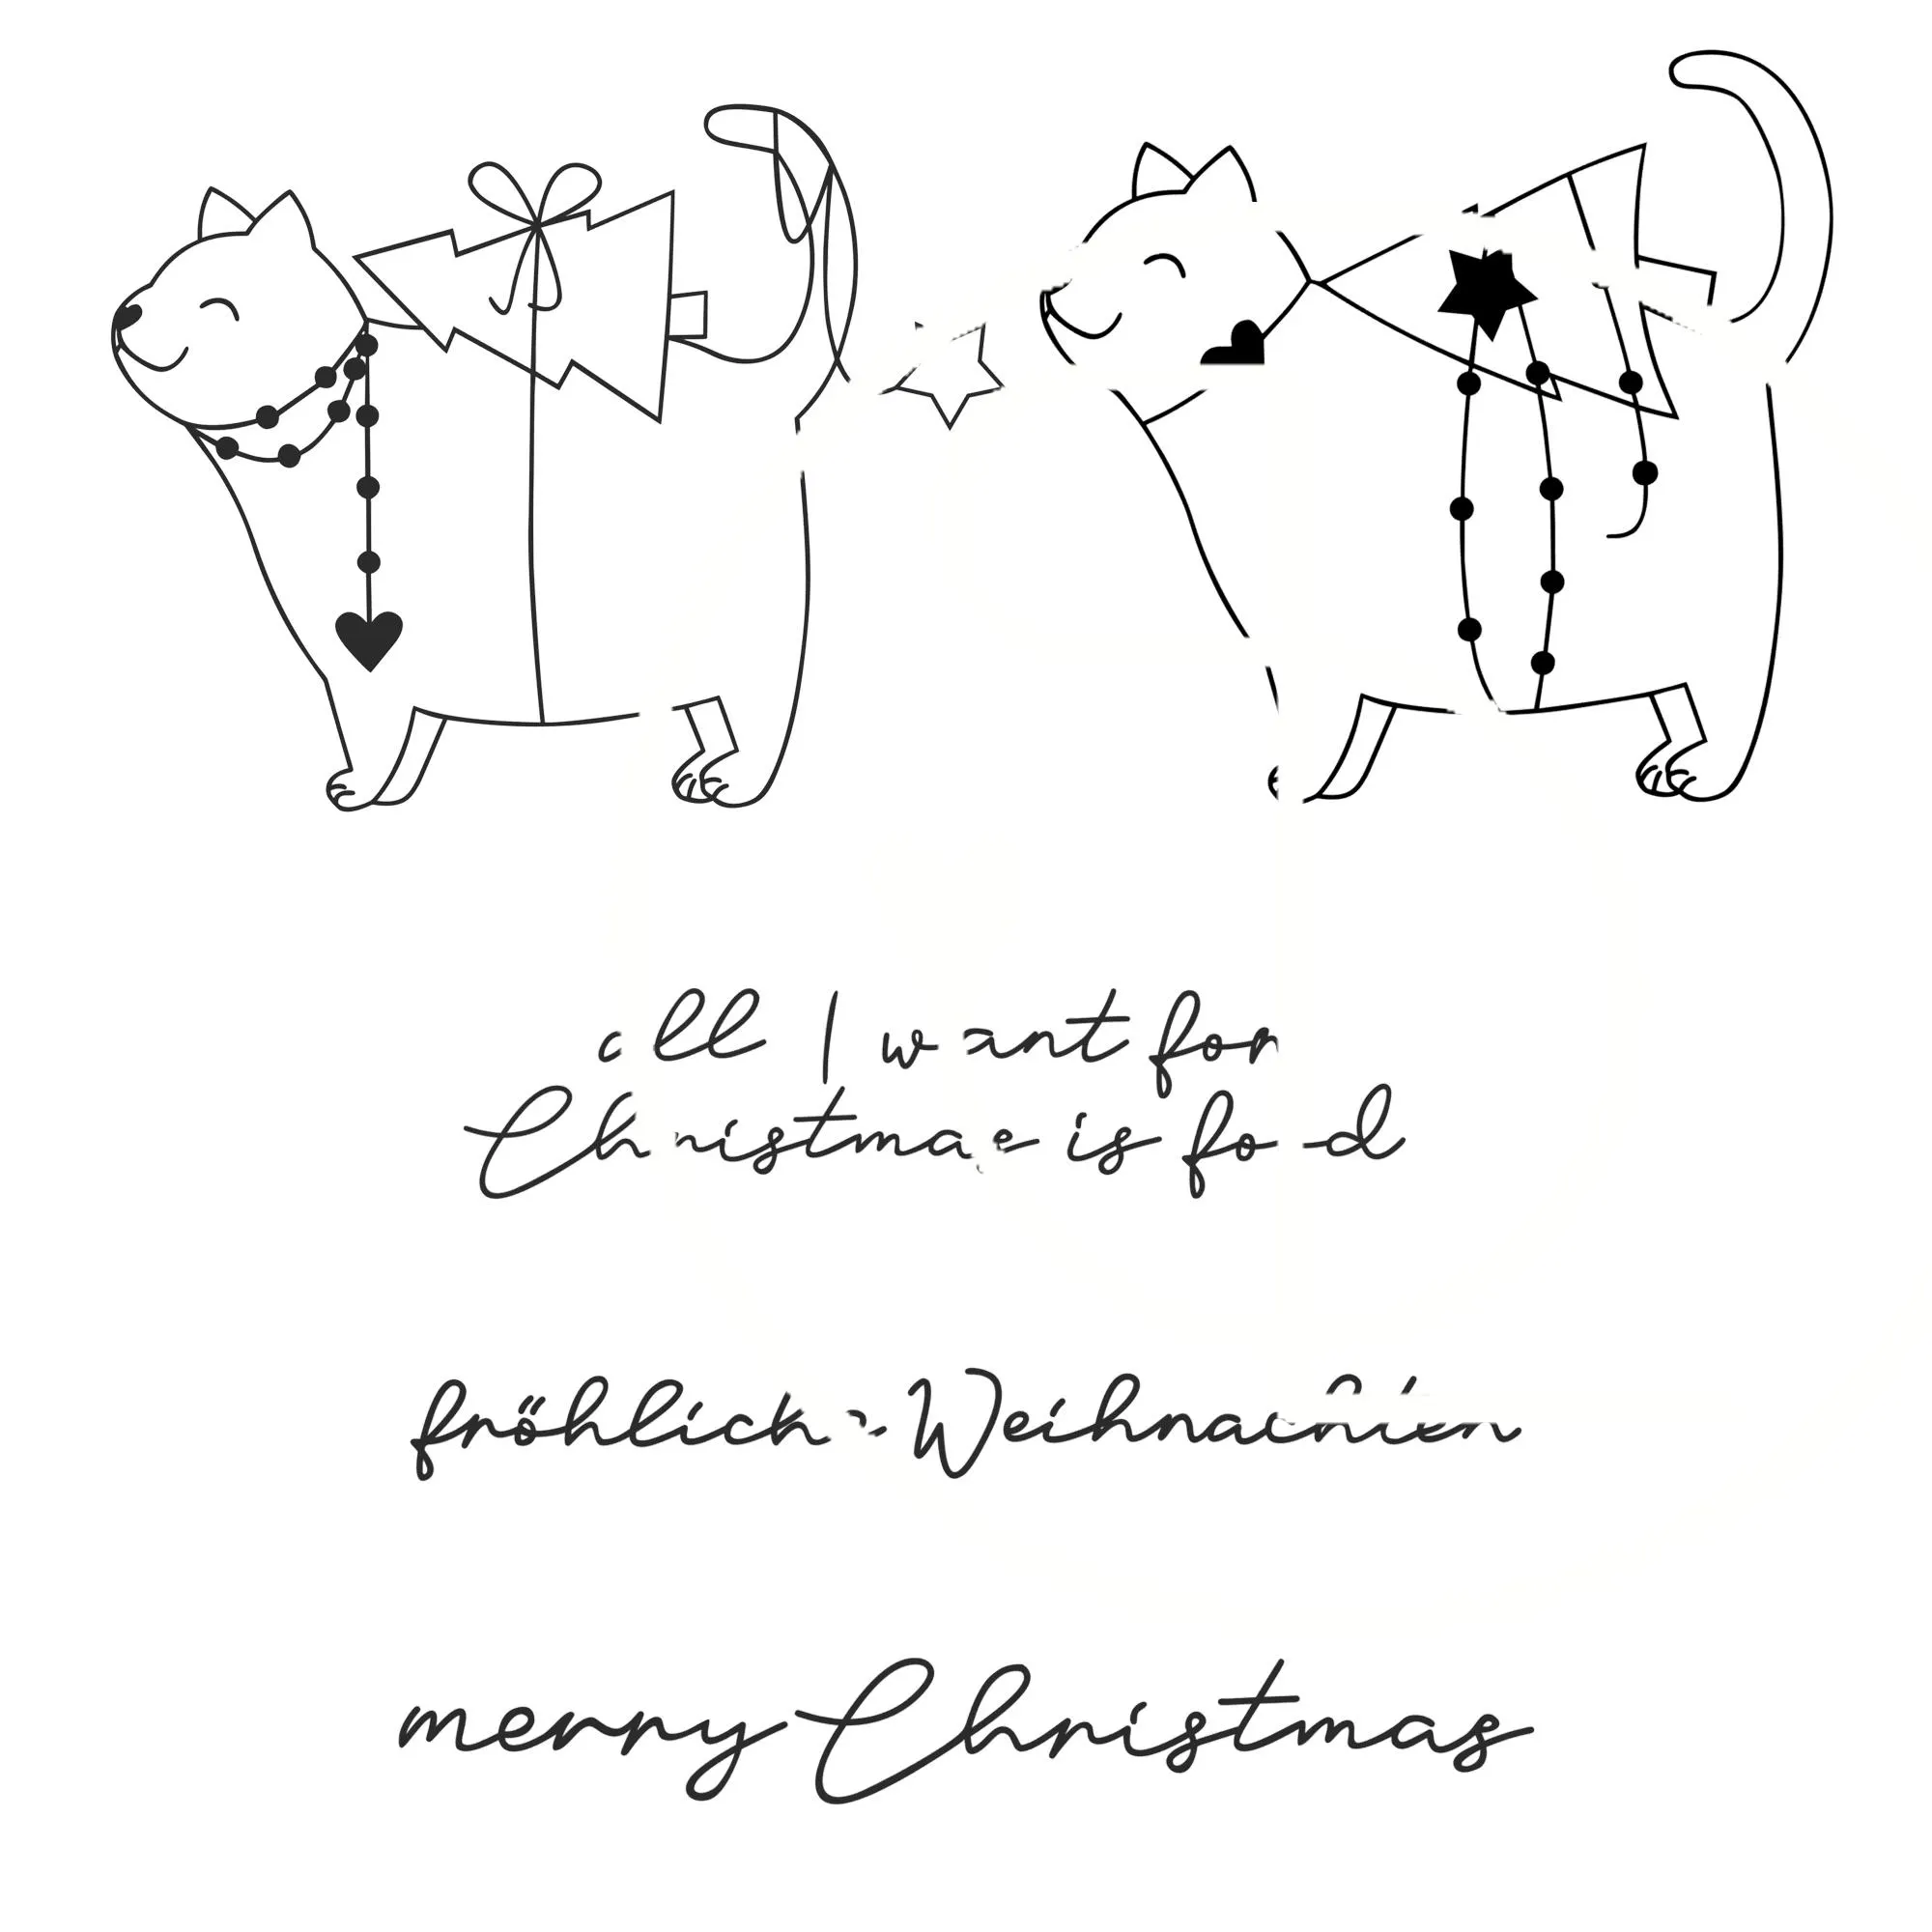 all I want for
Christmas is food
fröhliche Weihnachten
merry Christmas